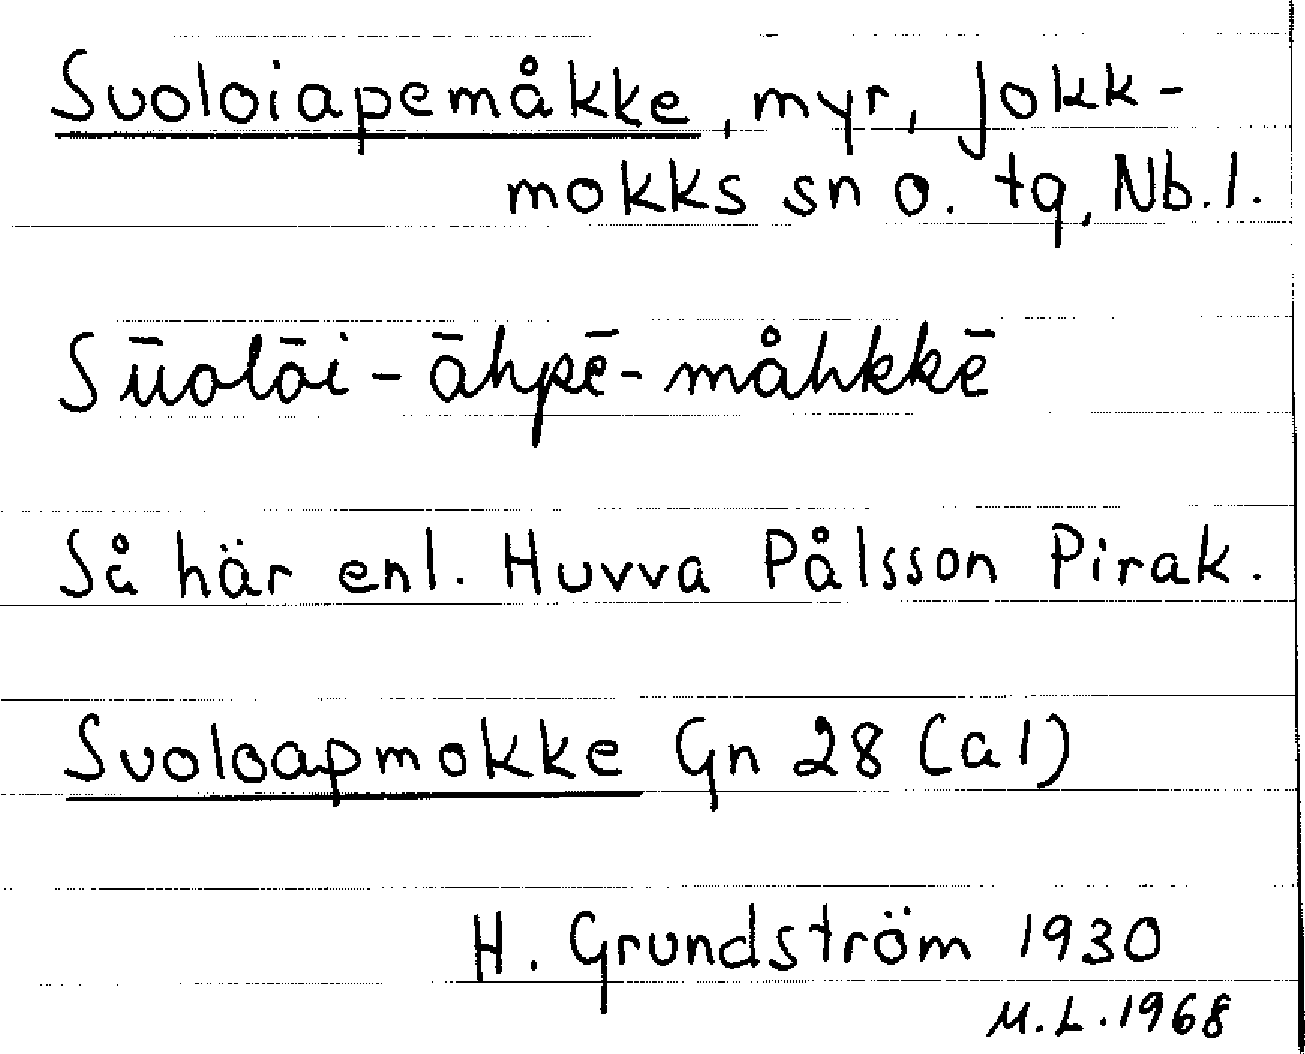 Suoloiapemåkke, myr, Jokk-
mokks sn o. tg, Nb. l.
Sūolōi-āhpē-måhkkē
Så här enl. Huvva Pålsson Pirak.
Suoloapmokke Gn 28 (a1)
H. Grundström 1930
M.L. 1968